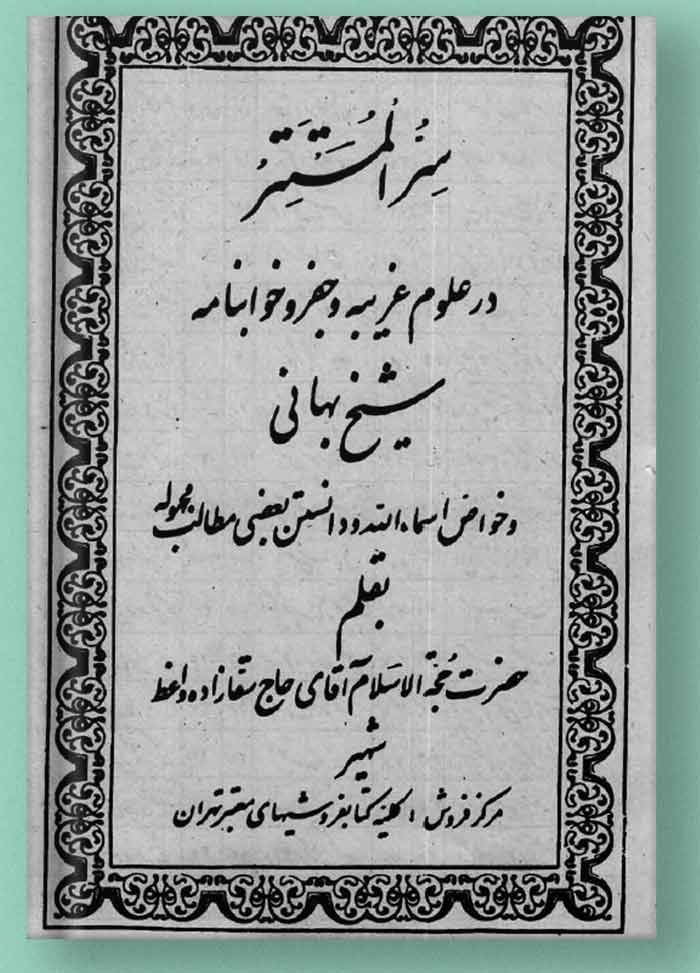 سِرُّ الْمُسْتَتَرُ
در علوم غریبه وجفر وخوابنامه
شیخ بهائی
وخواص اسماء الله ودانستن بعضی مطالب مجهوله
بقلم
حضرت حُجّة الاسلام آقای حاج سقازاده واعظ
شهیر
مرکز فروش : کلیهٔ کتابفروشیهای معتبر تهران